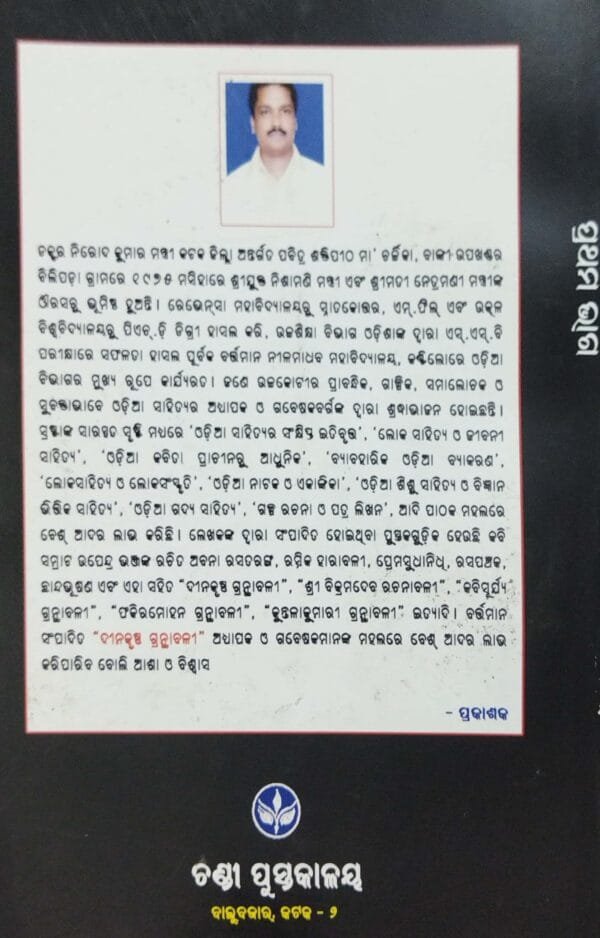 ଡକ୍ଟର ନିରୋଦ କୁମାର ମନ୍ତ୍ରୀ କଟକ ଜିଲ୍ଲା ଅନ୍ତର୍ଗତ ପବିତ୍ର ଶକ୍ତିପୀଠ ମା' ଚର୍ଚ୍ଚିକା, ବାଙ୍କୀ ଉପଖଣ୍ଡର
ବିଲିପଡ଼ା ଗ୍ରାମରେ ୧୯୭୫ ମସିହାରେ ଶ୍ରୀଯୁକ୍ତ ନିଶାମଣି ମନ୍ତ୍ରୀ ଏବଂ ଶ୍ରୀମତୀ ନେତ୍ରମଣୀ ମନ୍ତ୍ରୀଙ୍କ
ଔରସରୁ ଭୂମିଷ୍ଠ ହୁଅନ୍ତି। ରେଭେନ୍ସା ମହାବିଦ୍ୟାଳୟରୁ ସ୍ନାତକୋତ୍ତର, ଏମ୍.ଫିଲ୍ ଏବଂ ଉତ୍କଳ
ବିଶ୍ୱବିଦ୍ୟାଳୟରୁ ପିଏଚ୍.ଡ଼ି ଡିଗ୍ରୀ ହାସଲ କରି, ଉଚ୍ଚଶିକ୍ଷା ବିଭାଗ ଓଡ଼ିଶାଙ୍କ ଦ୍ୱାରା ଏସ୍.ଏସ୍.ବି
ପରୀକ୍ଷାରେ ସଫଳତା ହାସଲ ପୂର୍ବକ ବର୍ତ୍ତମାନ ନୀଳମାଧବ ମହାବିଦ୍ୟାଳୟ, କଣ୍ଟିଲୋରେ ଓଡ଼ିଆ
ବିଭାଗର ମୁଖ୍ୟ ରୂପେ କାର୍ଯ୍ୟରତ। ଜଣେ ଉଚ୍ଚକୋଟୀର ପ୍ରାବନ୍ଧିକ, ଗାଳ୍ପିକ, ସମାଲୋଚକ ଓ
ସୁବକ୍ତାଭାବେ ଓଡ଼ିଆ ସାହିତ୍ୟର ଅଧ୍ୟାପକ ଓ ଗବେଷକବର୍ଗଙ୍କ ଦ୍ୱାରା ଶ୍ରଦ୍ଧାଭାଜନ ହୋଇଛନ୍ତି।
ସ୍ରଷ୍ଟାଙ୍କ ସାରସ୍ୱତ ସୃଷ୍ଟି ମଧ୍ୟରେ 'ଓଡ଼ିଆ ସାହିତ୍ୟର ସଂକ୍ଷିପ୍ତ ଇତିବୃତ୍ତ', 'ଲୋକ ସାହିତ୍ୟ ଓ ଜୀବନୀ
ସାହିତ୍ୟ', 'ଓଡ଼ିଆ କବିତା ପ୍ରାଚୀନରୁ ଆଧୁନିକ', 'ବ୍ୟାବହାରିକ ଓଡ଼ିଆ ବ୍ୟାକରଣ',
'ଲୋକସାହିତ୍ୟ ଓ ଲୋକସଂସ୍କୃତି', 'ଓଡ଼ିଆ ନାଟକ ଓ ଏକାଙ୍କିକା', 'ଓଡ଼ିଆ ଶିଶୁ ସାହିତ୍ୟ ଓ ବିଜ୍ଞାନ
ଭିତ୍ତିକ ସାହିତ୍ୟ', 'ଓଡ଼ିଆ ଗଦ୍ୟ ସାହିତ୍ୟ', 'ଗଳ୍ପ ରଚନା ଓ ପତ୍ର ଲିଖନ', ଆଦି ପାଠକ ମହଲରେ
ବେଶ୍ ଆଦର ଲାଭ କରିଛି। ଲେଖକଙ୍କ ଦ୍ୱାରା ସଂପାଦିତ ହୋଇଥିବା ପୁସ୍ତକଗୁଡ଼ିକ ହେଉଛି କବି
ସମ୍ରାଟ ଉପେନ୍ଦ୍ର ଭଞ୍ଜଙ୍କ ରଚିତ ଅବନା ରସତରଙ୍ଗ, ରସିକ ହାରାବଳୀ, ପ୍ରେମସୁଧାନିଧି, ରସପଞ୍ଚକ,
ଛାନ୍ଦଭୂଷଣ ଏବଂ ଏହା ସହିତ "ଦୀନକୃଷ୍ଣ ଗ୍ରନ୍ଥାବଳୀ", "ଶ୍ରୀ ବିକ୍ରମଦେବ ରଚନାବଳୀ", "କବିସୂର୍ଯ୍ୟ
ଗ୍ରନ୍ଥାବଳୀ", "ଫକିରମୋହନ ଗ୍ରନ୍ଥାବଳୀ", "କୁନ୍ତଳାକୁମାରୀ ଗ୍ରନ୍ଥାବଳୀ" ଇତ୍ୟାଦି। ବର୍ତ୍ତମାନ
ସଂପାଦିତ "ଦୀନକୃଷ୍ଣ ଗ୍ରନ୍ଥାବଳୀ" ଅଧ୍ୟାପକ ଓ ଗବେଷକମାନଙ୍କ ମହଲରେ ବେଶ୍ ଆଦର ଲାଭ
କରିପାରିବ ବୋଲି ଆଶା ଓ ବିଶ୍ୱାସ
- ପ୍ରକାଶକ
ପ୍ରଥମ ଭାଗ
ଚଣ୍ଡୀ ପୁସ୍ତକାଳୟ
ବାଲୁବଜାର, କଟକ - ୨